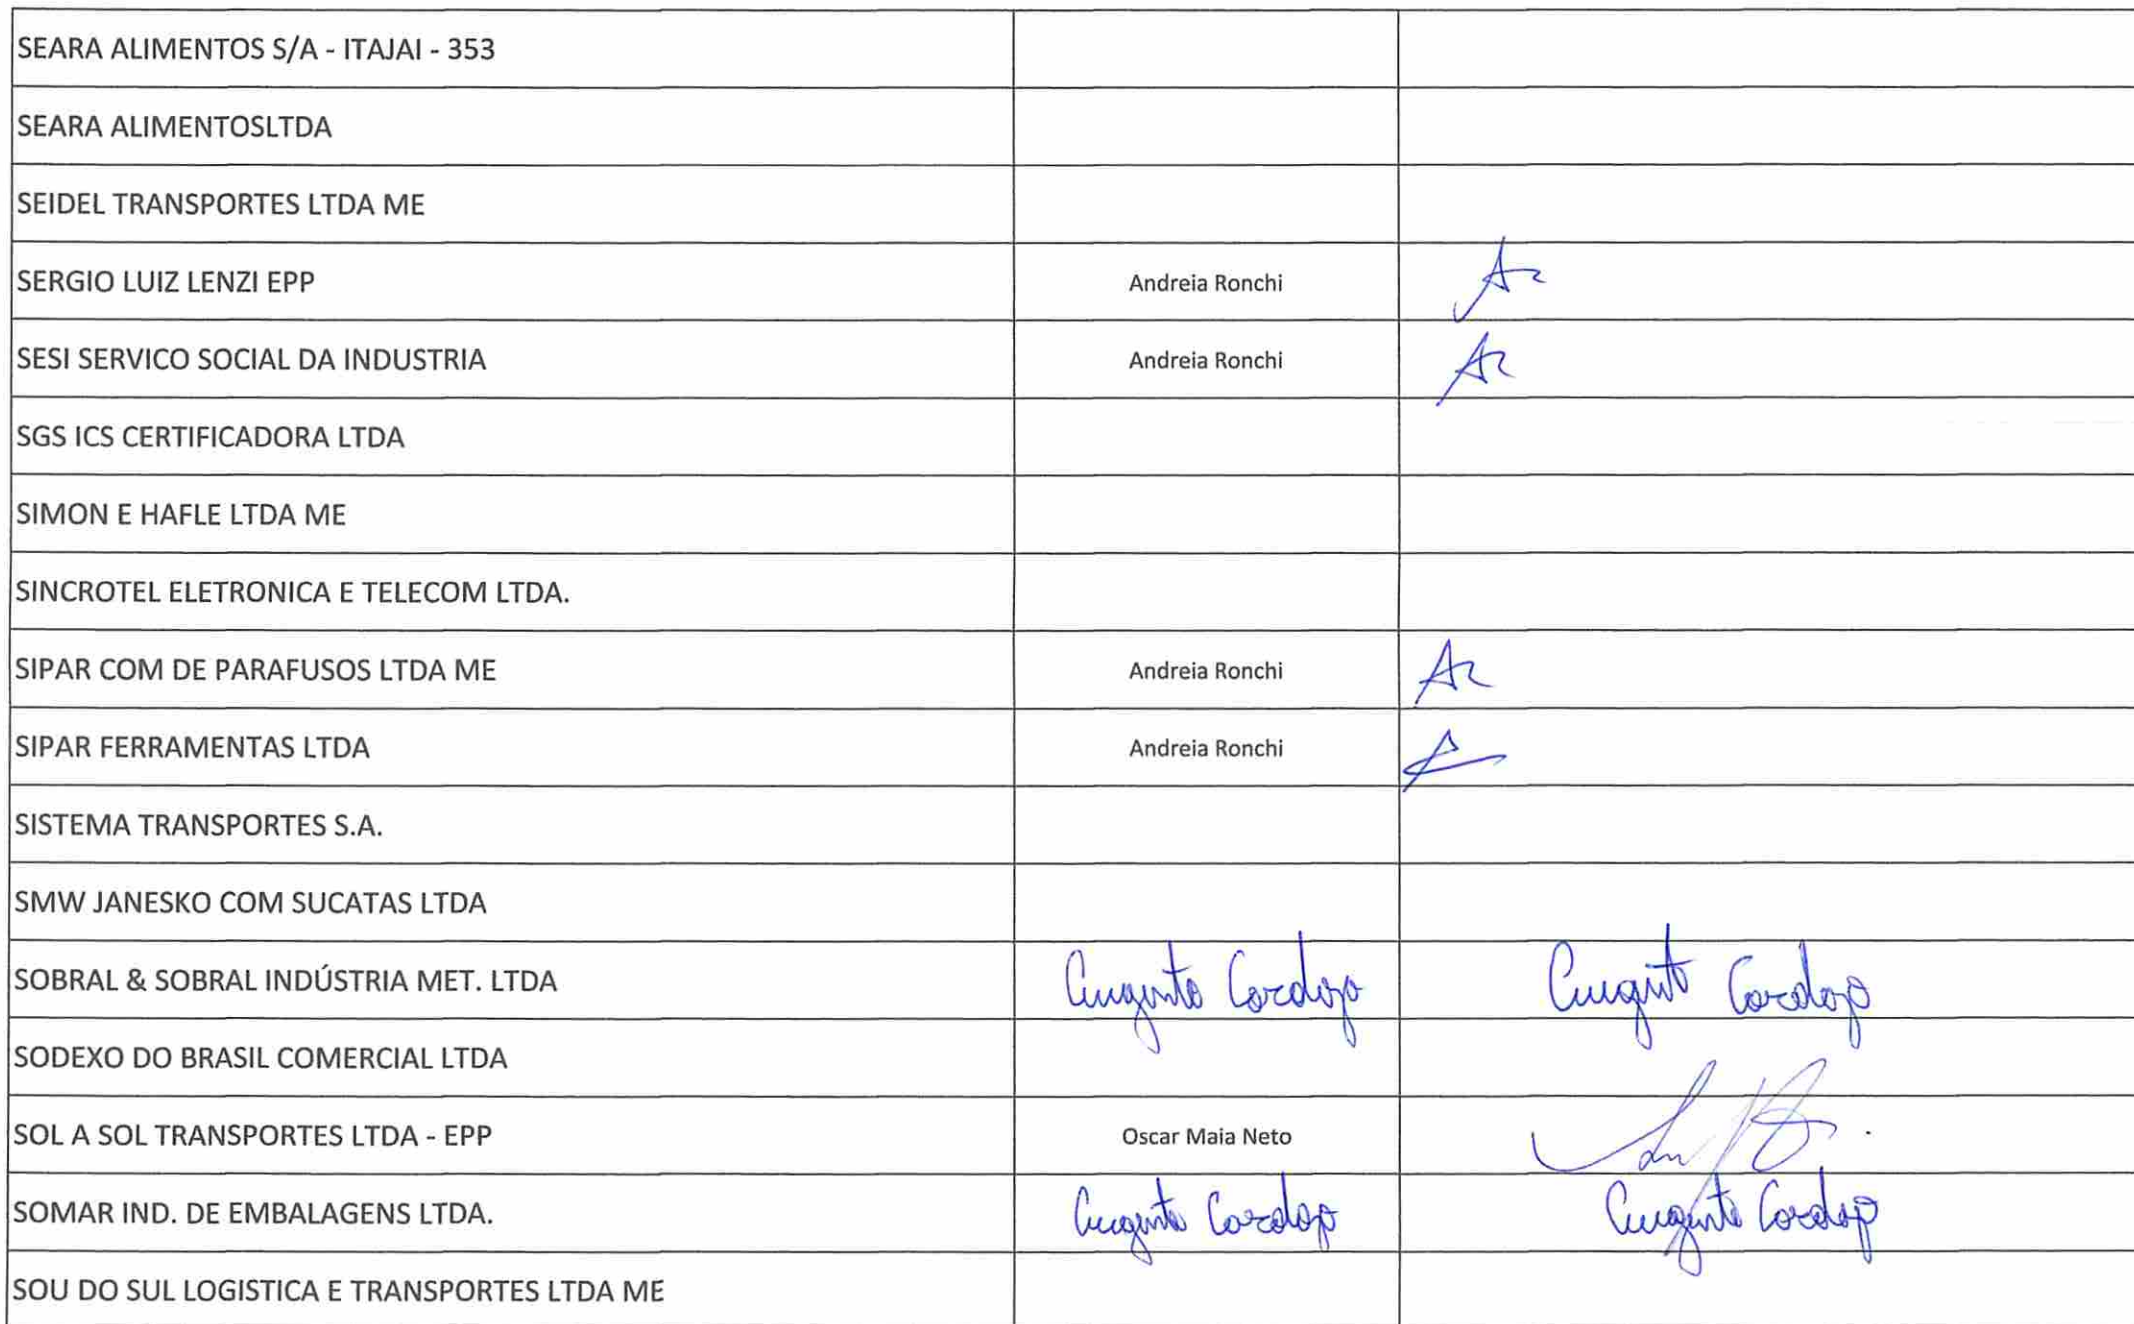 SEARA ALIMENTOS S/A - ITAJAI - 353
SEARA ALIMENTOSLTDA
SEIDEL TRANSPORTES LTDA ME
SERGIO LUIZ LENZI EPP Andreia Ronchi
SESI SERVICO SOCIAL DA INDUSTRIA Andreia Ronchi
SGS ICS CERTIFICADORA LTDA
SIMON E HAFLE LTDA ME
SINCROTEL ELETRONICA E TELECOM LTDA.
SIPAR COM DE PARAFUSOS LTDA ME Andreia Ronchi
SIPAR FERRAMENTAS LTDA Andreia Ronchi
SISTEMA TRANSPORTES S.A.
SMW JANESKO COM SUCATAS LTDA
SOBRAL & SOBRAL INDÚSTRIA MET. LTDA Augusto Cardozo Augusto Cardozo
SODEXO DO BRASIL COMERCIAL LTDA
SOL A SOL TRANSPORTES LTDA - EPP Oscar Maia Neto
SOMAR IND. DE EMBALAGENS LTDA. Augusto Cardozo Augusto Cardozo
SOU DO SUL LOGISTICA E TRANSPORTES LTDA ME